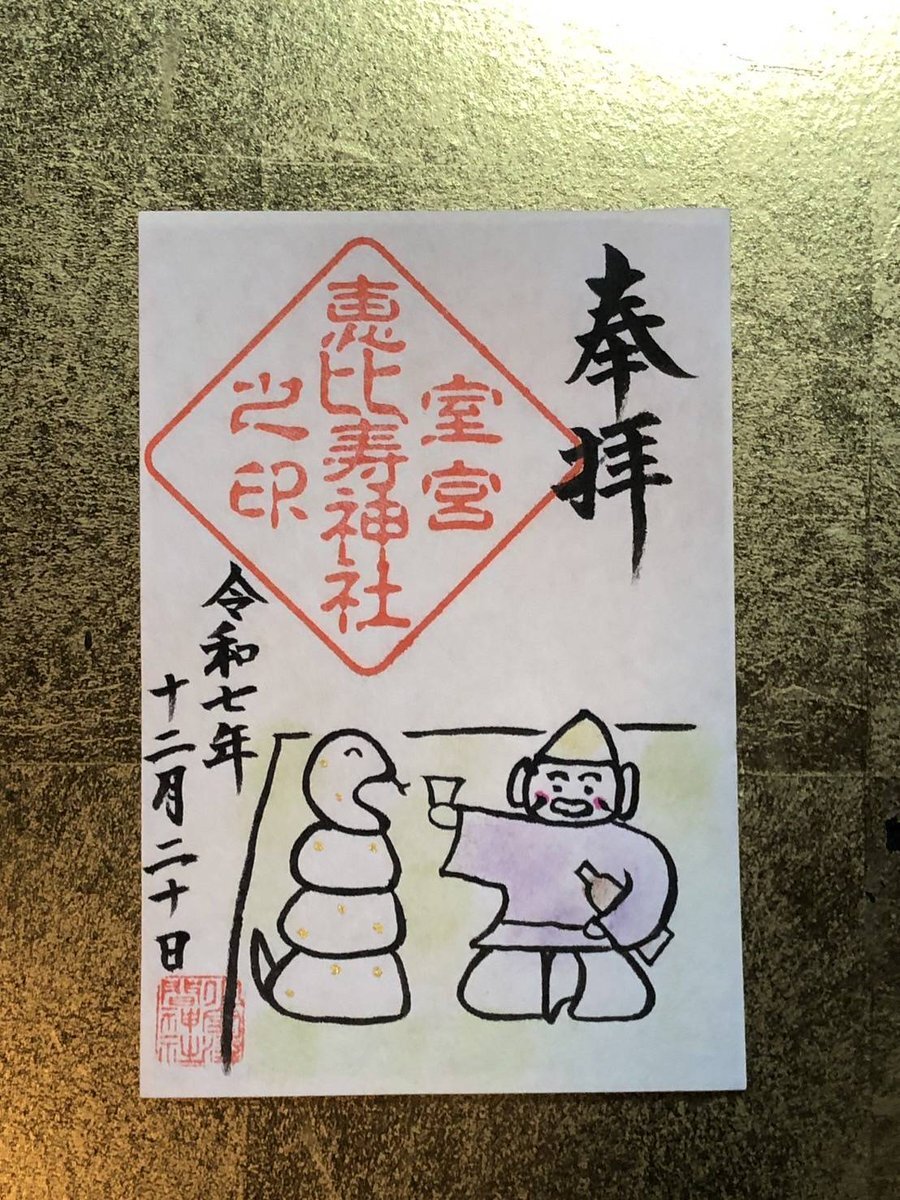 奉拝
室宮
恵比寿神社
之印
令和七年
十二月二十日